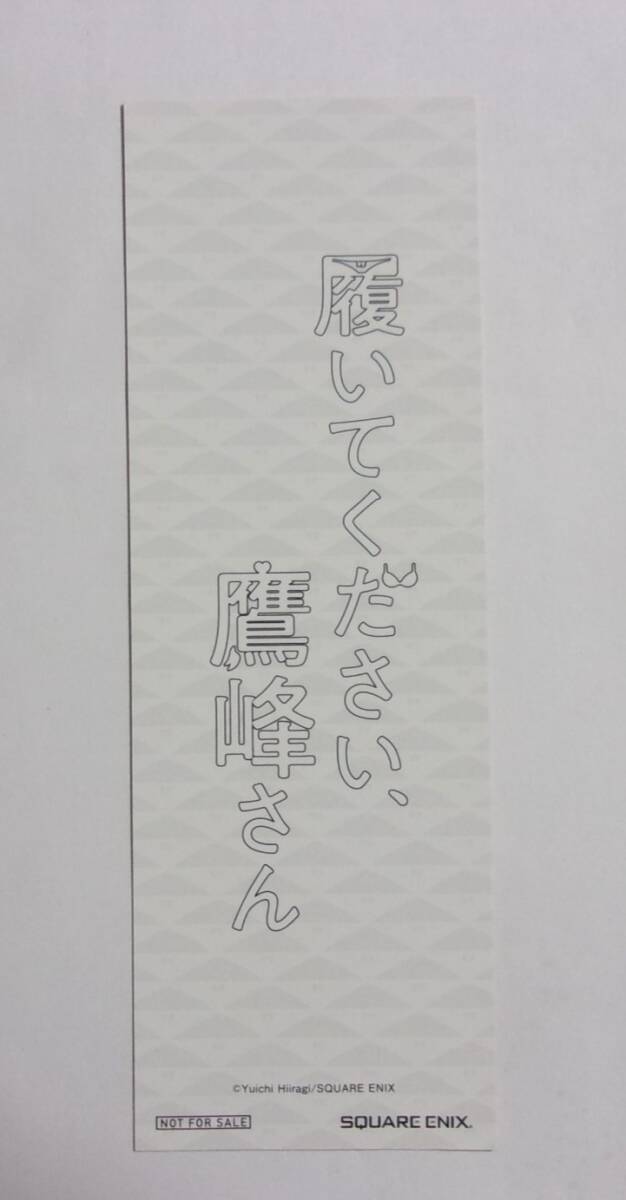 履いてください、
鷹峰さん
©Yuichi Hiiragi/SQUARE ENIX
NOT FOR SALE
SQUARE ENIX.